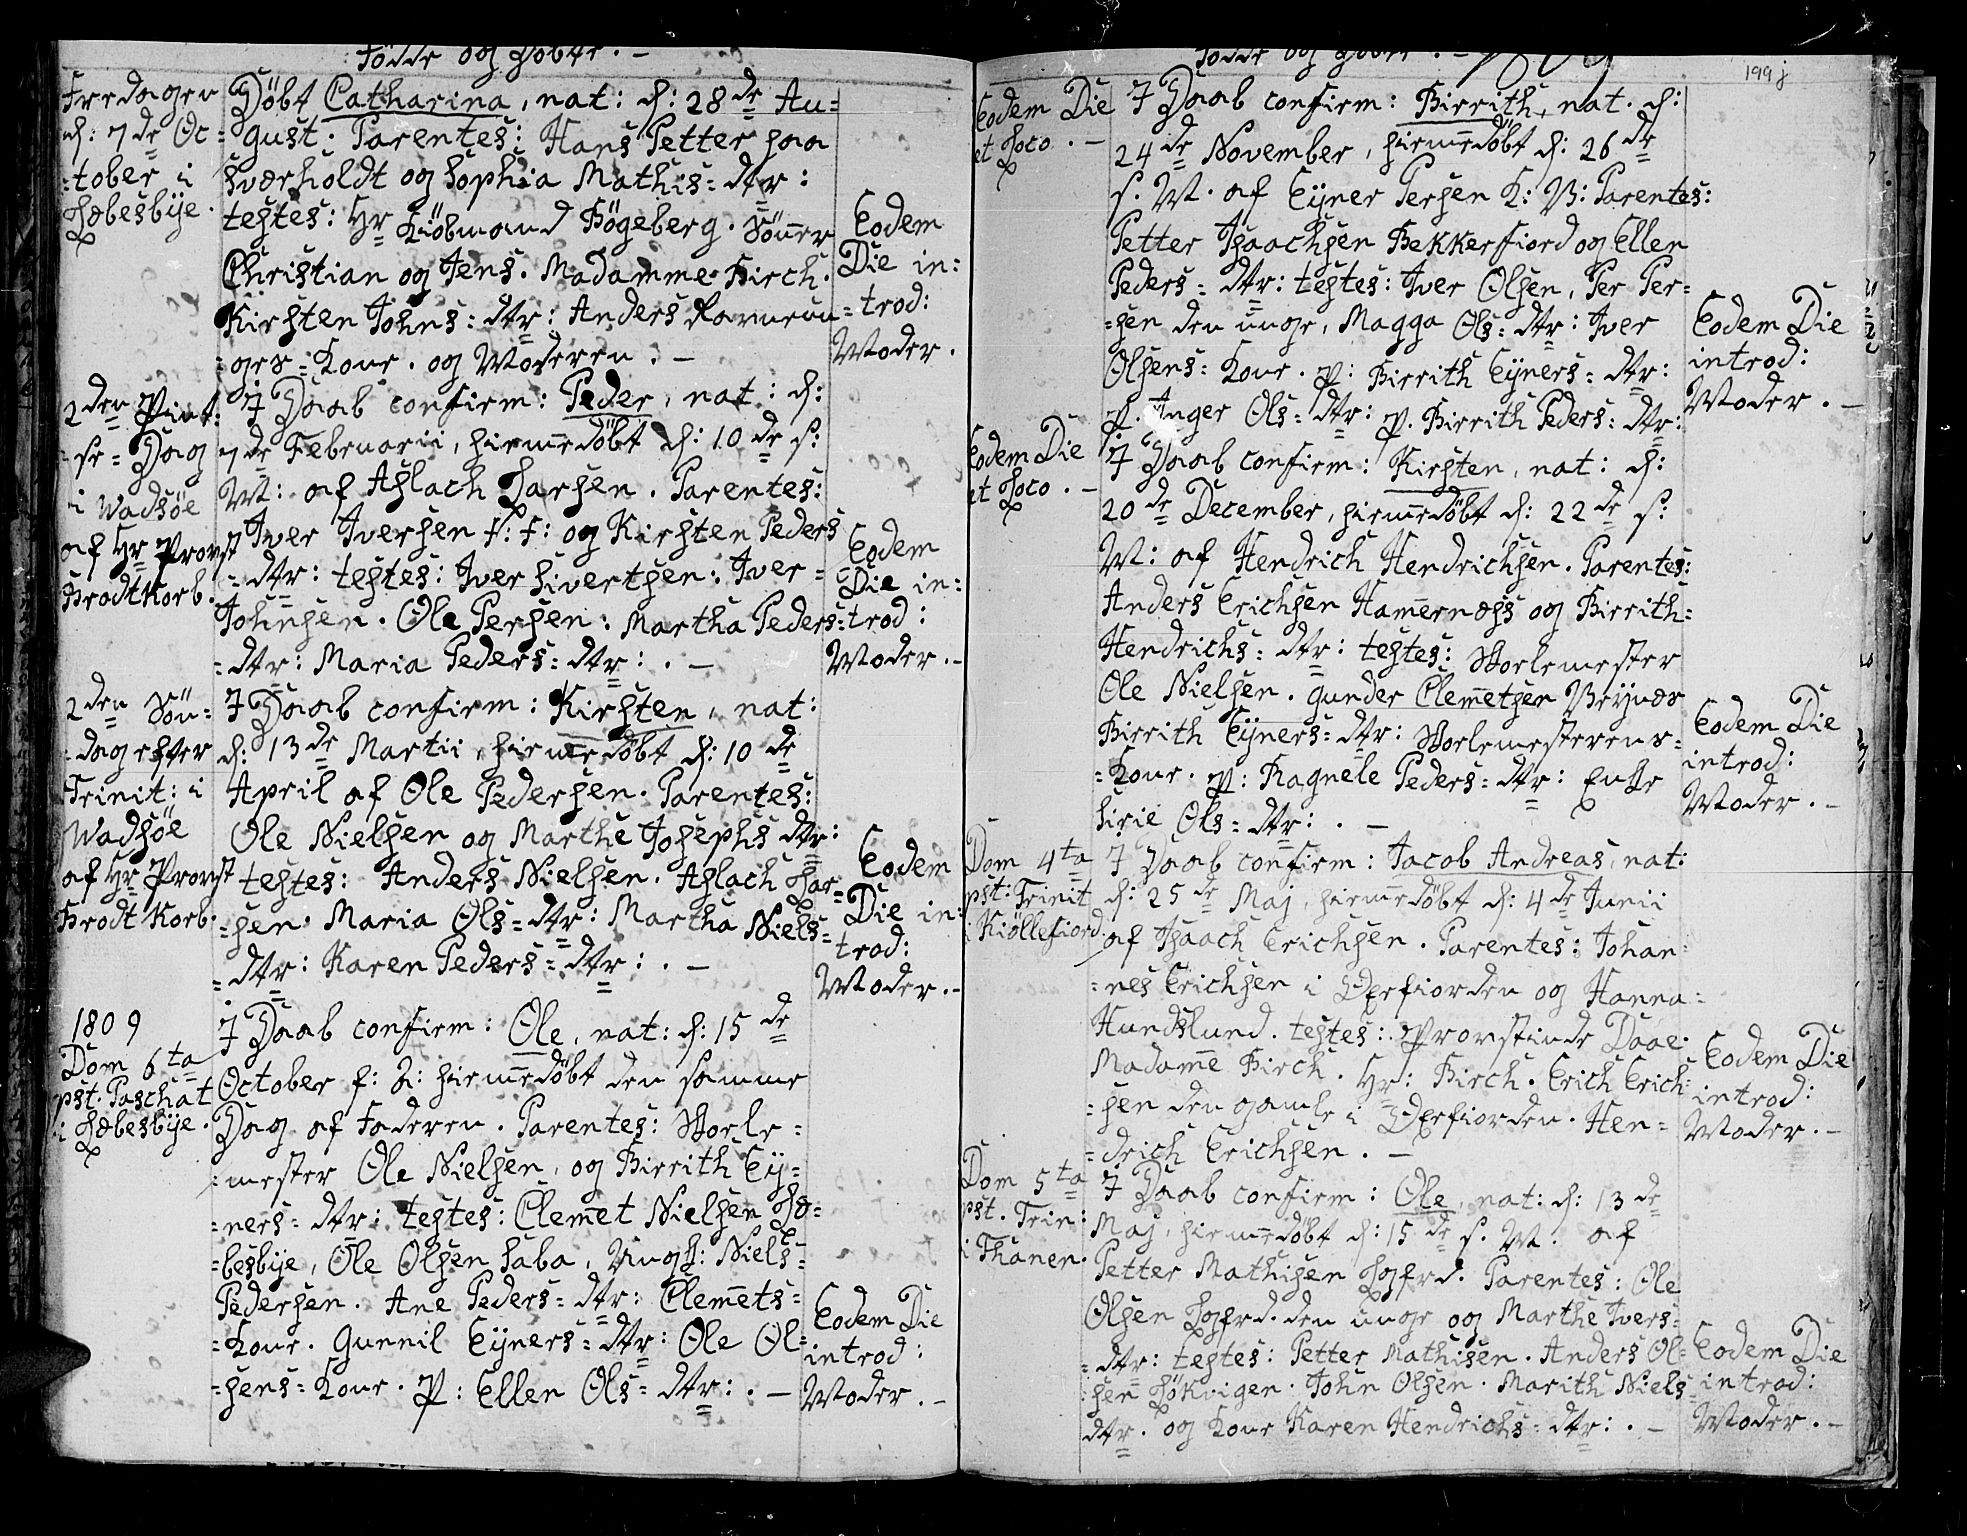 Födde og Döbte. –
Fredagen
d: 7de Oc-
-tober i
Læbesbÿe.
Döbt Catharina, nat: d: 28de Au-
gust. Parentes: Hans Petter paa
Sværholdt og Sophia Mathis-dtr:
testes: Hr Kiöbmand Bögeberg. Sönner
Christian og Jens. Madamme Birch.
Kirsten Johns-dtr: Anders
-ges-Kone. og Moderen. –
Eodem
Die in:
-trod:
Moder.
2den Pint:
-se-Dag
i Wadsöe
af Hr Provst
Brodtkorb.
I Daab confirm: Peder, nat: d:
7de Februarii, hiemedöbt d: 10de s:
M: af Aslach Larsen. Parentes:
Iver Iversen f: f: og Kirsten Peders
-dtr: testes: Iver Sivertsen: Iver-
Johnsen. Ole Persen: Martha Peders-
-dtr: Maria Peders-dtr: . –
Eodem
Die in:
trod:
Moder. –
2den Sön-
-dag efter
Trinit: i
Wadsöe
af Hr Provst
Brodtkorb.
I Daab confirm: Kirsten, nat:
d: 13de Martii, hiemedöbt d: 10de
April af Ole Pedersen. Parentes:
Ole Nielsen og Marthe Josephs dtr:
testes: Anders Nielsen. Aslach Lar-
-sen. Maria Ols-dtr: Martha Niels-
-dtr: Karen Peders-dtr: . –
Eodem
Die in:
trod:
Moder. –
1809
Dom 6ta
pst. Paschat
i Læbesbÿe.
I Daab confirm: Ole, nat: d: 15de
October f: A: hiemedöbt den samme
Dag af Faderen. Parentes: Skole-
-mester Ole Nielsen, og Birrith Eÿ-
-ners-dtr: testes: Clemet Nielsen Læ-
-besbÿe, Ole Olsen Saba, Ungk: Niels-
Pedersen. Ane Peders-dtr: Clemets-
-Kone. Gunnil Eÿners-dtr: Ole Ol-
-sens-Kone. P: Ellen Ols-dtr: . –
Eodem Die
introd:
Moder. –
Födde og Döbte. –
199
Eodem Die
et Loco. –
I Daab confirm: Birrith, nat. d:
24de November, hiemedöbt d: 26de
s. M. af Eÿner Persen K: B: Parentes:
Petter Isaachsen Bekkerfiord og Ellen
Peders-dtr: testes: Iver Olsen, Per Per-
-sen den unge, Magga Ols-dtr: Iver
Olsens-Kone. P: Birrith Eÿners-dtr:
P. Inger Ols-dtr: P. Birrith Peders-dtr:
Eodem Die
introd:
Moder. –
Eodem Die
et Loco. –
I Daab confirm: Kirsten, nat: d:
20de December, hiemedöbt d: 22de s:
M: af Hendrich Hendrichsen. Parentes:
Anders Erichsen Hamernæss og Birrith-
Hendrichs-dtr: testes: Skolemester
Ole Nielsen. Gunder Clemetsen Veÿnæs
Birrith Eÿners-dtr: Skolemesterens-
-Kone. P: Ragnele Peders-dtr: Enke
Sirie Ols-dtr: . –
Eodem Die
introd:
Moder. –
Dom 4ta
pst: Trinit
i Kiöllefiord.
I Daab confirm: Jacob Andreas, nat:
d: 25de Maj, hiemedöbt d: 4de Junii
af Isaach Erichsen. Parentes: Johan-
-nes Erichsen i Oxefiorden og Hanna-
Hundslund. testes: Provstinde Daae.
Madame Birch. Hr: Birch. Erich Erich-
-sen den gamle i Oxefiorden. Hen-
-drich Erichsen. –
Eodem Die
introd:
Moder. –
Dom 5ta
pst. Trin:
i Thanen.
I Daab confirm: Ole, nat: d: 13de
Maj, hiemedöbt d: 15de s. M. af
Petter Mathisen Lgfrd. Parentes: Ole
Olsen Lgfrd. den unge og Marthe Ivers-
-dtr: testes: Petter Mathisen. Anders Ol-
-sen Lökvigen. John Olsen. Marith Niels-
dtr. og Kone Karen Hendrichs-dtr: . –
Eodem Die
introd:
Moder. –